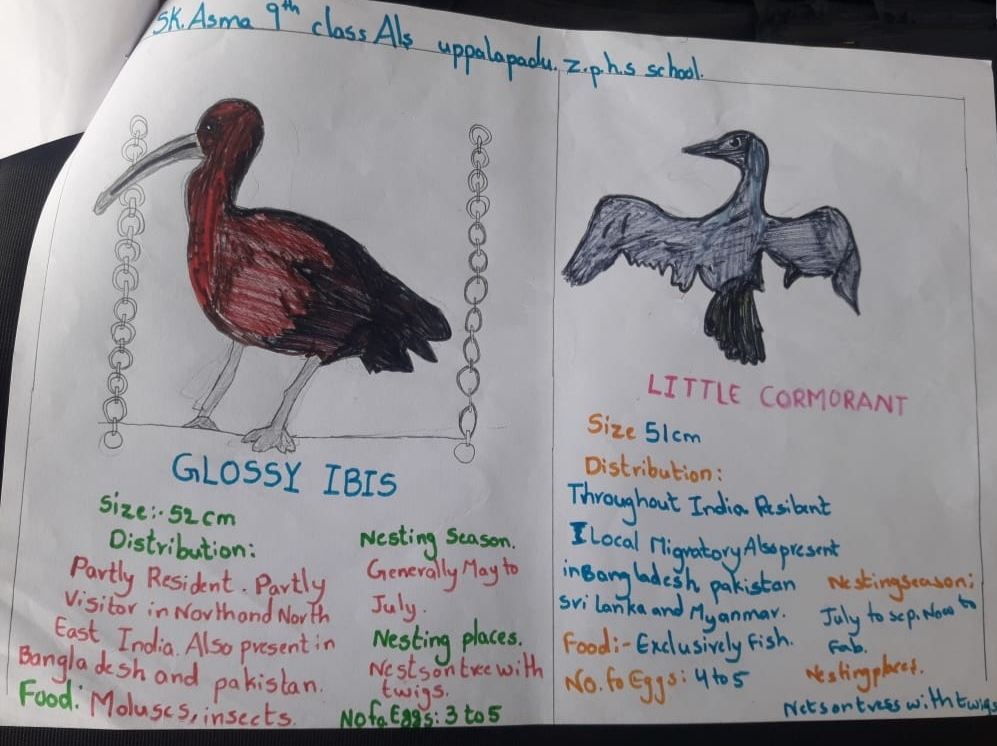 SK. Asma 9th class Als uppalapadu. z.p.h.s school.
GLOSSY IBIS
Size:- 52 cm
Distribution:
Partly Resident. Partly
Visitor in North and North
East India. Also present in
Bangladesh and pakistan.
Food: Moluscs, insects.
Nesting Season.
Generally May to
July.
Nesting places.
Nests on tree with
twigs.
No fo Eggs: 3 to 5
LITTLE CORMORANT
Size 51cm
Distribution:
Throughout India Resibent
I Local Migratory Also present
in Bangladesh, pakistan
Sri lanka and Myanmar.
Food:- Exclusively Fish.
No. fo Eggs: 4 to 5
Nesting season:
July to sep. Now to
Fab.
Nesting places.
Nets on tress with twigs